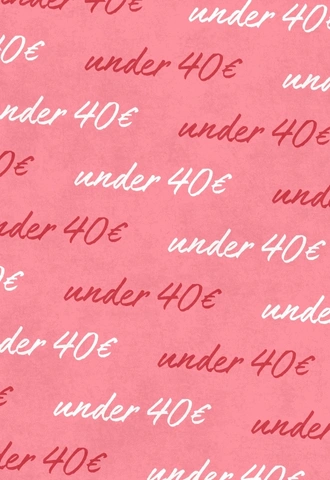 under 40€
under 40
0€
under 40€
un
nder 40€
under 40€
0€
under 40€
und
nder 40€
under 40€
0€
under 40€
unde
der 40€
under 40€
€
under 40€
unde
der 40€
under 40€